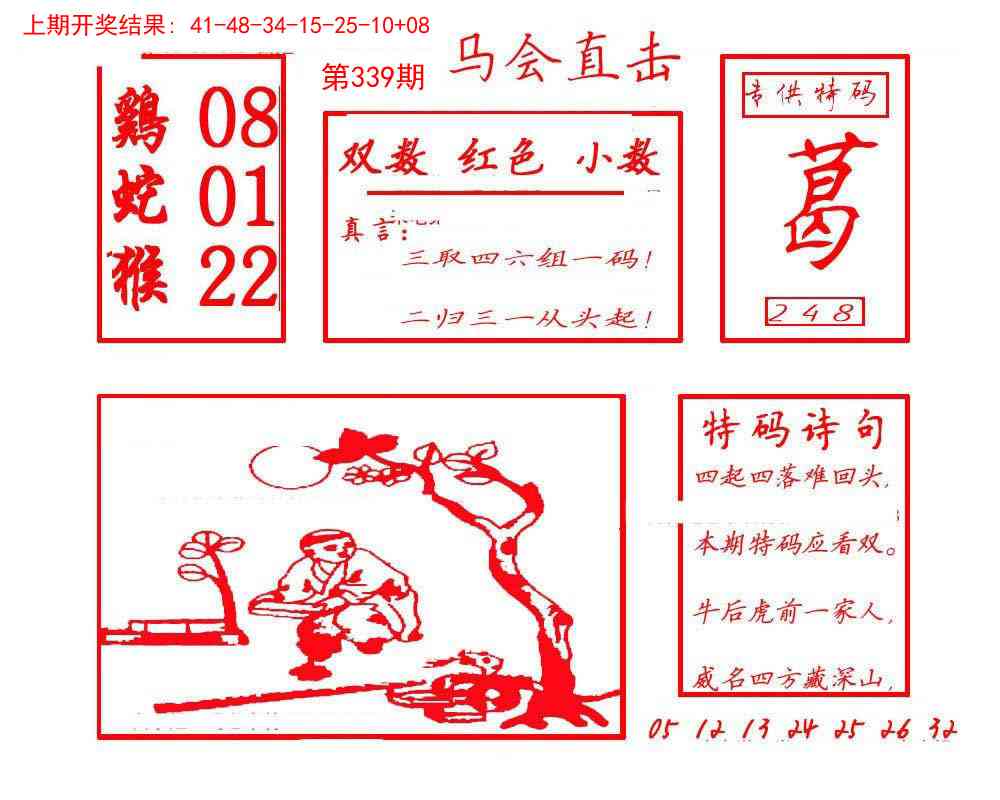 上期开奖结果: 41-48-34-15-25-10+08
第339期
马会直击
鷄 08
蛇 01
猴 22
双数 红色 小数
真言:
三取四六组一码!
二归三一从头起!
专供特码
葛
248
特码诗句
四起四落难回头,
本期特码应看双。
牛后虎前一家人,
威名四方藏深山,
05 12 13 24 25 26 32